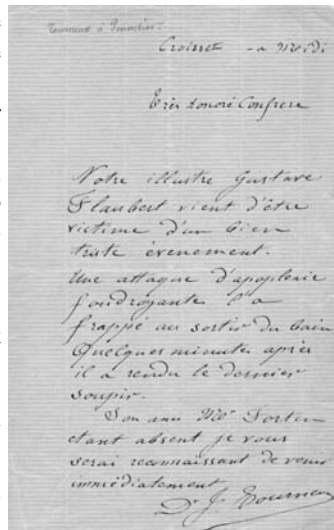 Tourneux à
Croisset - a Midi
Très honoré Confrère
Notre illustre Gustave
Flaubert vient d'être
victime d'un bien
triste évenement.
Une attaque d'apoplexie
foudroyante l'a
frappé au sortir du bain
Quelques minutes après
il a rendu le dernier
soupir.
Son ami Mr Fortin
étant absent je vous
serai reconnaissant de venir
immédiatement
Dr J. Tourneux